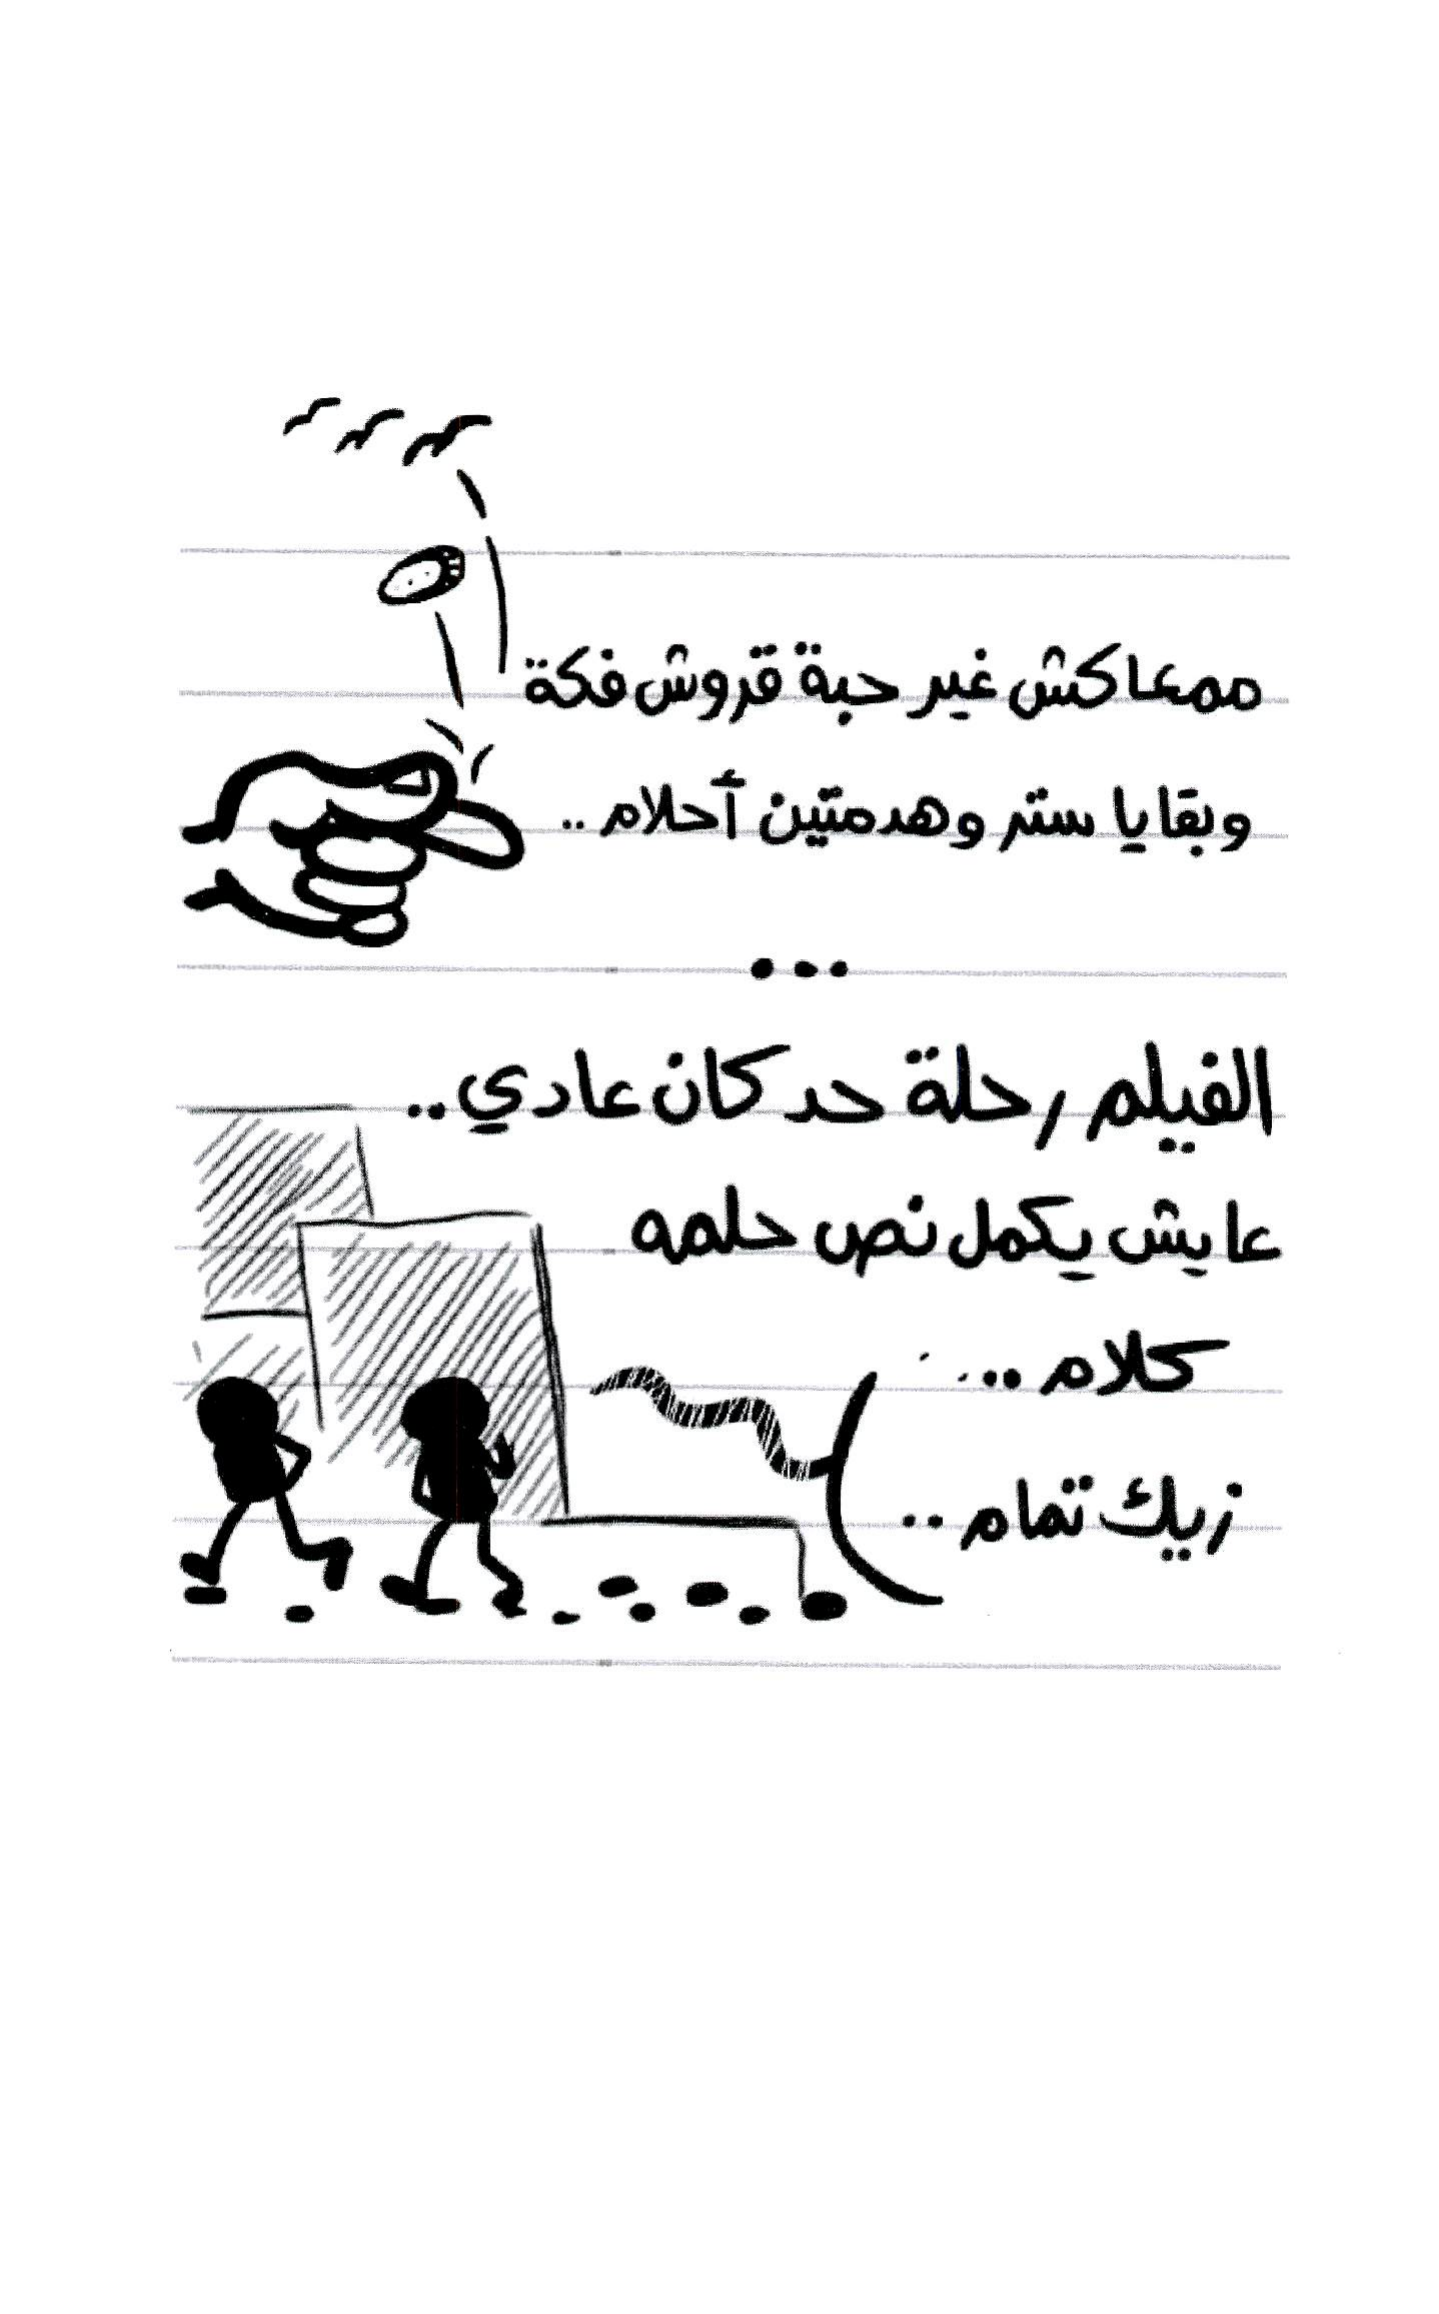 ممعاكش غير حبة قروش فكة
وبقايا ستر وهدمتين أحلام ..
...
الفيلم رحلة حد كان عادي..
عايش يكمل نص حلمه
كلام ...
زيك تمام ..